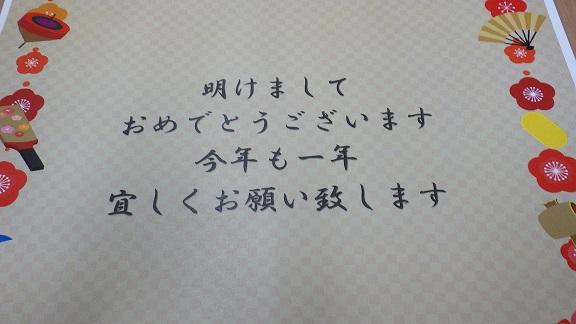 明けまして
おめでとうございます
今年も一年
宜しくお願い致します